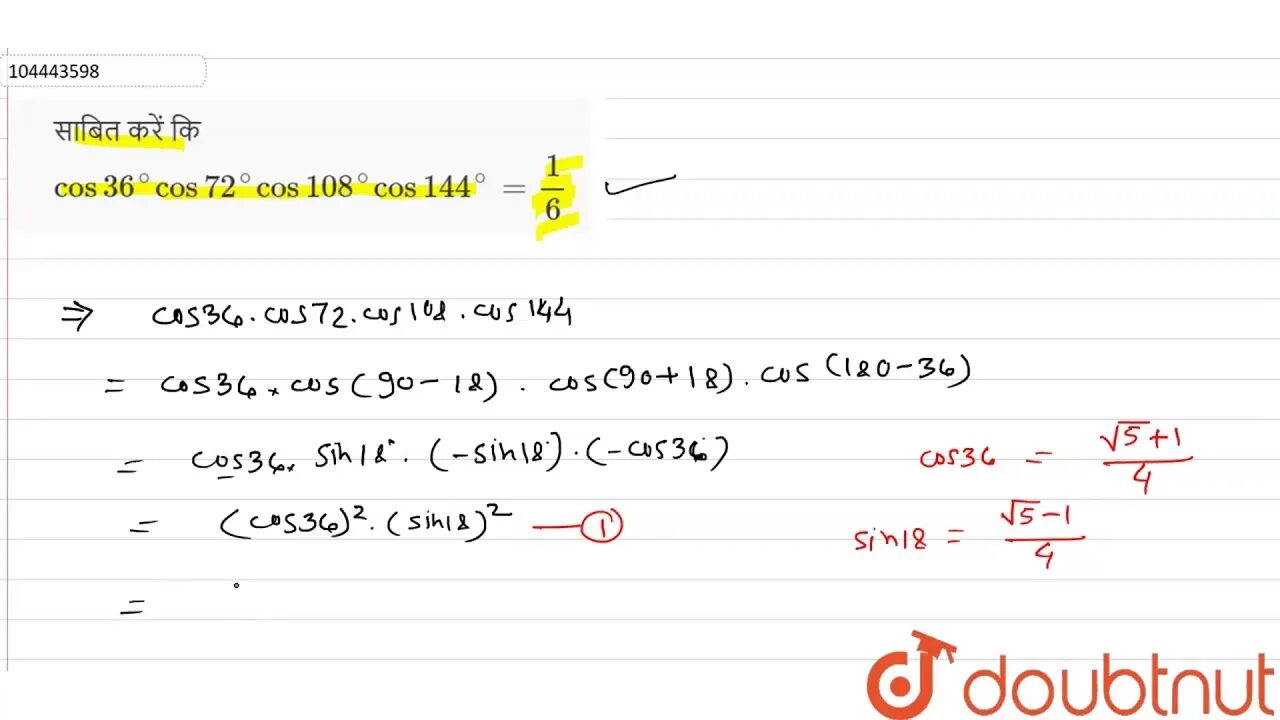 104443598
साबित करें कि
cos 36° cos 72° cos 108° cos 144° = 1/6
⇒ cos36. cos72. cos108. cos 144
= cos36 × cos(90-18) . cos(90+18). cos(180-36)
= cos36. sin18°. (-sin18°).(-cos36°)
cos36 = (√5+1)/4
= (cos36)². (sin18)² — ①
sin18 = (√5-1)/4
=
doubtnut